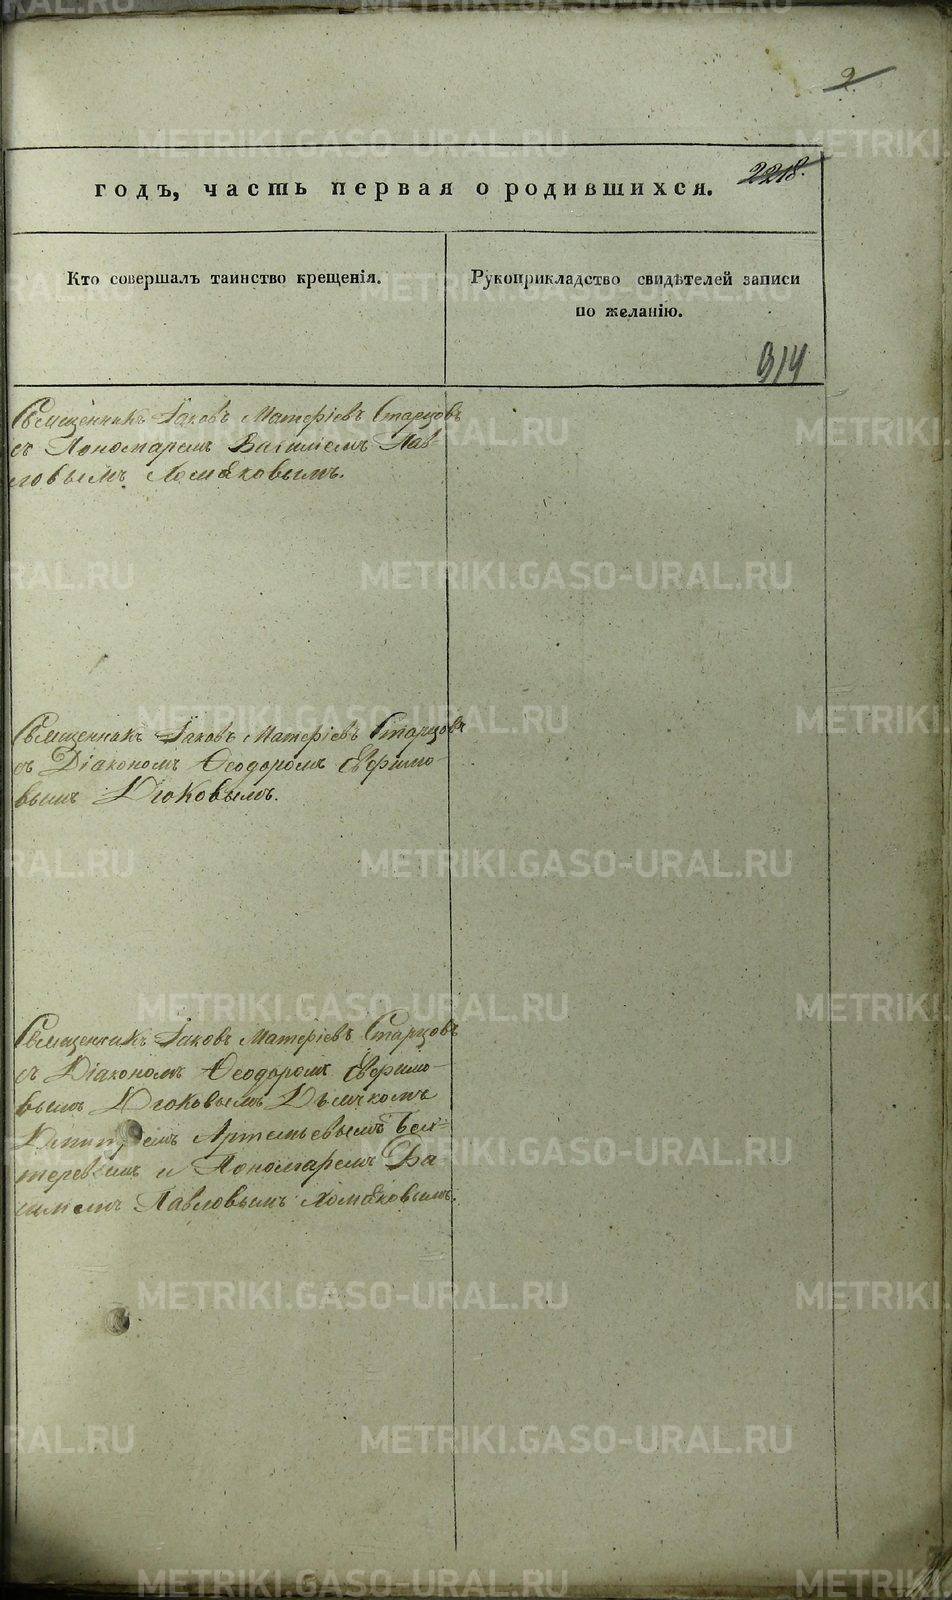 2
годъ, часть первая о родившихся.
2218.
Кто совершалъ таинство крещенія.
Рукоприкладство свидѣтелей записи
по желанію.
314
Священникъ Іаковъ Матѳіевъ Старцовъ
съ Пономаремъ Василіемъ Пав-
ловымъ Хомяковымъ.
Священникъ Іаковъ Матѳіевъ Старцовъ
съ Діакономъ Ѳеодоромъ Ефимо-
вымъ
Священникъ Іаковъ Матѳіевъ Старцовъ
съ Діакономъ Ѳеодоромъ Ефимо-
вымъ Дьячкомъ
Артемьевымъ Бех-
теревымъ и Пономаремъ Ва
силіемъ Павловымъ Хомяковымъ.
METRIKI.GASO-URAL.RU